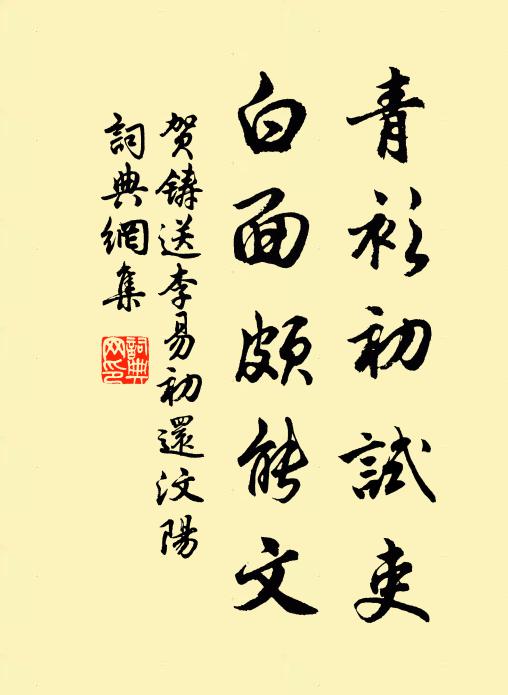 青衫初試吏
白面頗能文
賀鑄送李易初還汶陽
詞典網集
詞典
网印